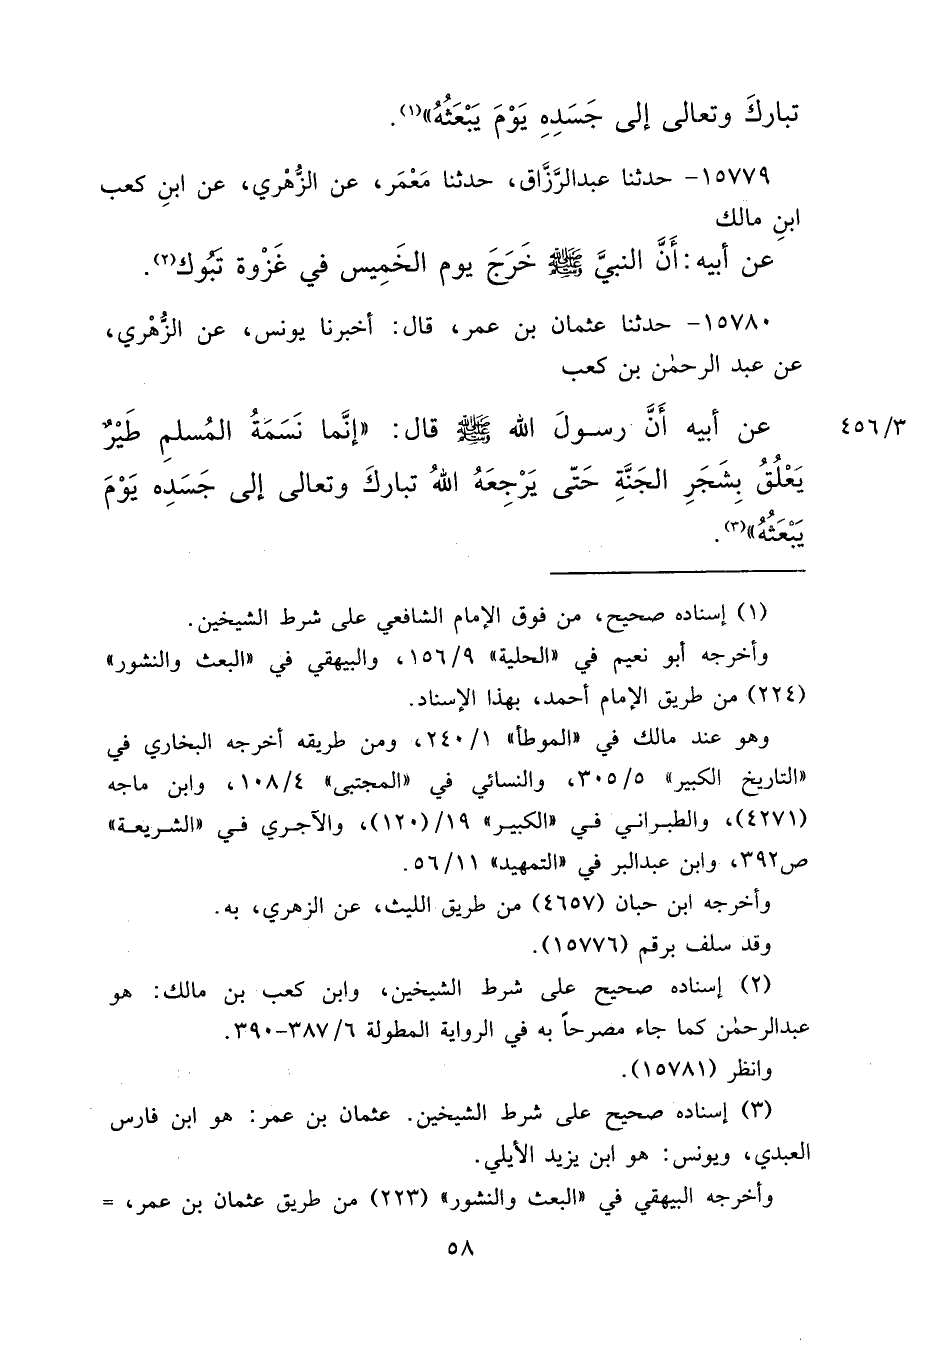 تباركَ وتعالى إلى جَسَدِهِ يَوْمَ يَبْعَثُهُ»(١).
١٥٧٧٩- حدثنا عبدالرَّزَّاق، حدثنا مَعْمَر، عن الزُّهْري، عن ابنِ كعب
ابنِ مالك
عن أبيه: أَنَّ النبيَّ ﷺ خَرَجَ يوم الخَمِيس في غَزْوة تَبُوك(٢).
١٥٧٨٠- حدثنا عثمان بن عمر، قال: أخبرنا يونس، عن الزُّهْري،
عن عبد الرحمٰن بن كعب
عن أبيه أَنَّ رسولَ الله ﷺ قال: «إنَّما نَسَمَةُ المُسلمِ طَيْرٌ
٤٥٦/٣
يَعْلُقُ بِشَجَرِ الجَنَّةِ حَتّى يَرْجِعَهُ اللهُ تباركَ وتعالى إلى جَسَدِه يَوْمَ
يَبْعَثُهُ»(٣).
(١) إسناده صحيح، من فوق الإمام الشافعي على شرط الشيخين.
وأخرجه أبو نعيم في «الحلية» ١٥٦/٩، والبيهقي في «البعث والنشور»
(٢٢٤) من طريق الإمام أحمد، بهذا الإسناد.
وهو عند مالك في «الموطأ» ٢٤٠/١، ومن طريقه أخرجه البخاري في
«التاريخ الكبير» ٣٠٥/٥، والنسائي في «المجتبى» ١٠٨/٤، وابن ماجه
(٤٢٧١)، والطبراني في «الكبير» ١٩/(١٢٠)، والآجري في «الشريعة»
ص٣٩٢، وابن عبدالبر في «التمهيد» ٥٦/١١.
وأخرجه ابن حبان (٤٦٥٧) من طريق الليث، عن الزهري، به.
وقد سلف برقم (١٥٧٧٦).
(٢) إسناده صحيح على شرط الشيخين، وابن كعب بن مالك: هو
عبدالرحمٰن كما جاء مصرحاً به في الرواية المطولة ٣٨٧/٦-٣٩٠.
وانظر (١٥٧٨١).
(٣) إسناده صحيح على شرط الشيخين. عثمان بن عمر: هو ابن فارس
العبدي، ويونس: هو ابن يزيد الأيلي.
وأخرجه البيهقي في «البعث والنشور» (٢٢٣) من طريق عثمان بن عمر، =
٥٨